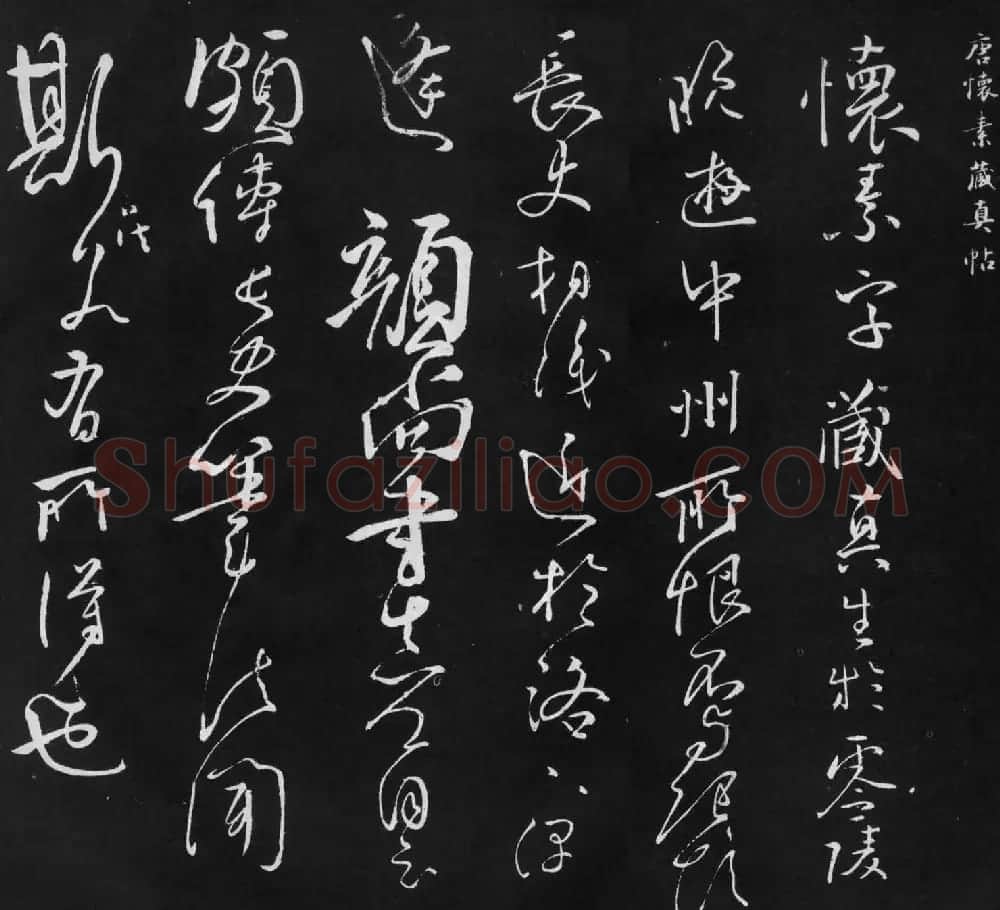 唐懷素藏真帖
懷素字藏真生於零陵
晚遊中州所恨不與張顛
長史相識近於洛下偶
逢顏尚書真卿自云
頗傳長史筆法聞
斯八法若有所得也
Shufaziliao.COM